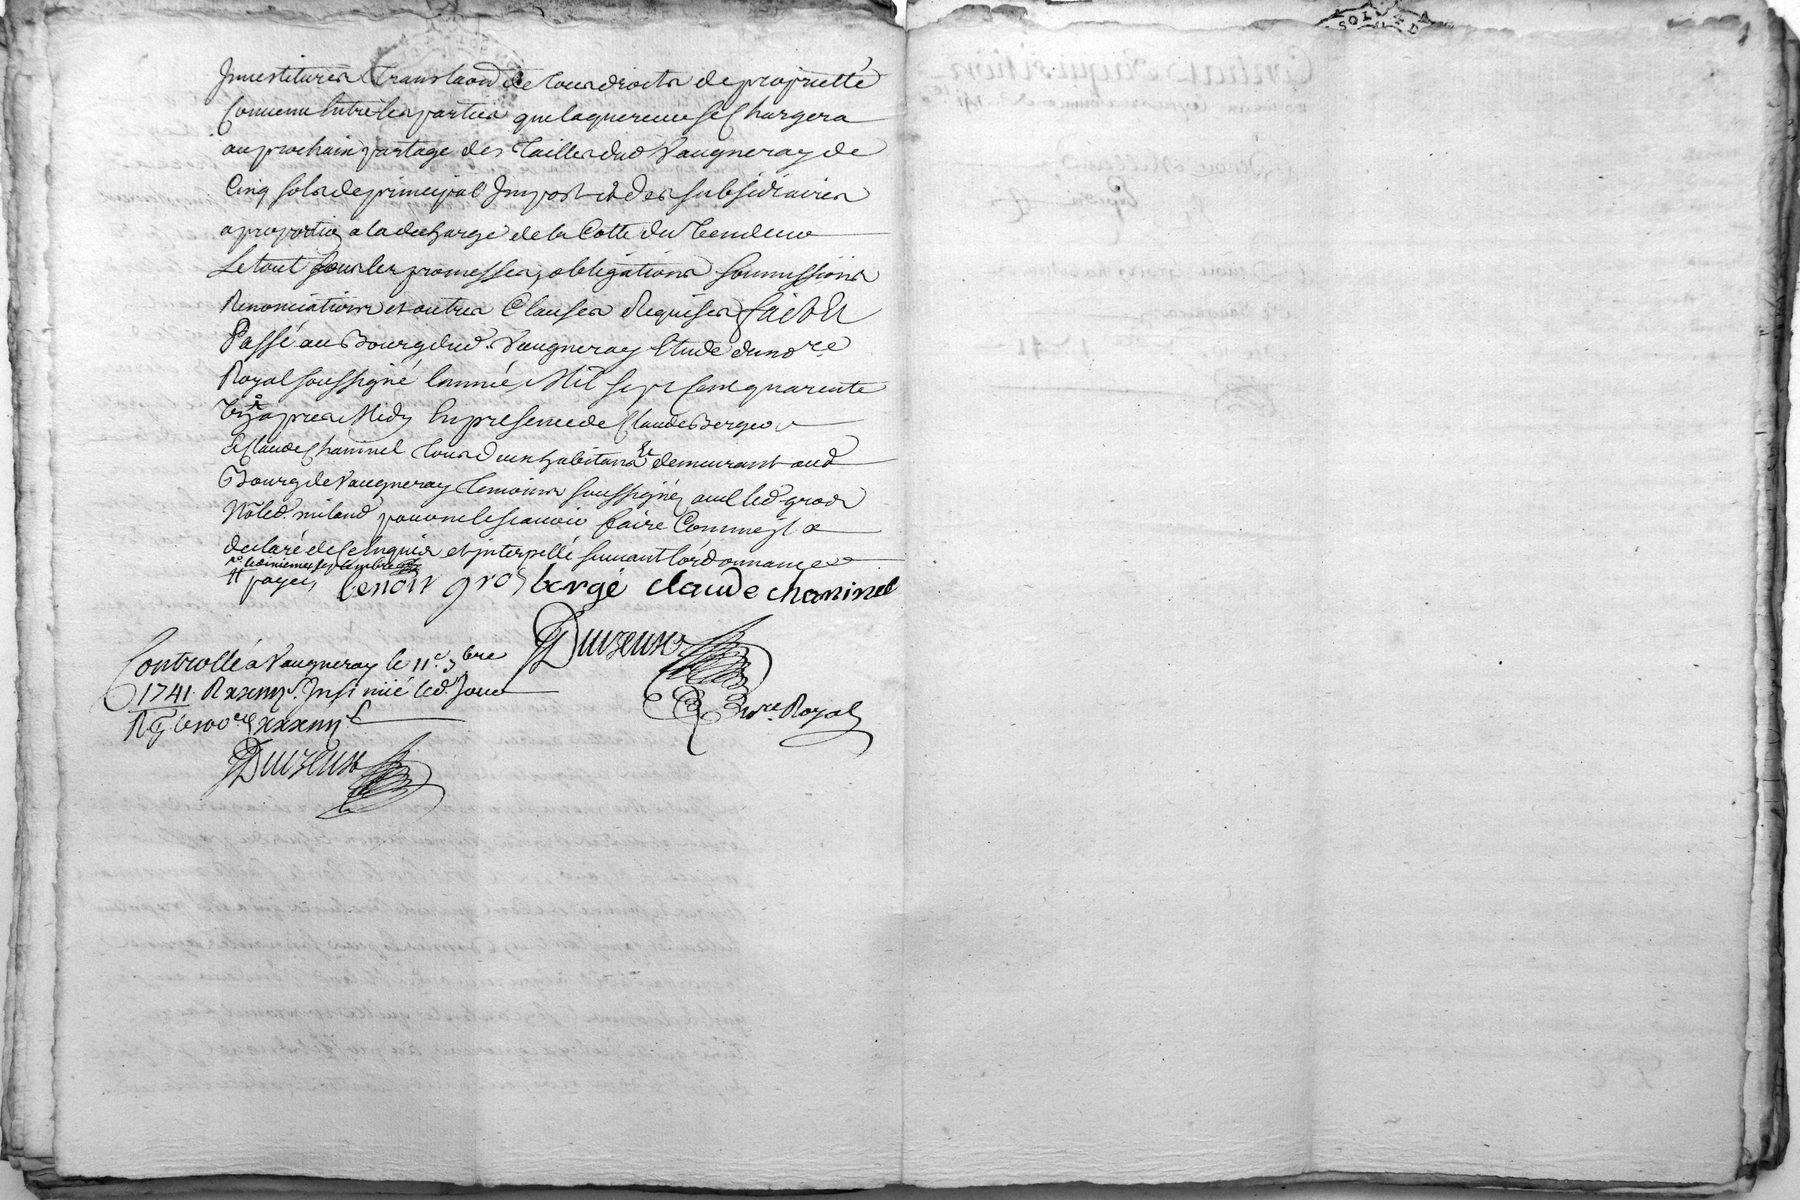 Jnuestitures Translaõn de tous droits de proprietté
Conuenu Entre les parties que laquereuse se Chargera
au prochain partage des Tailles dud Vaugneray de
Cinq sols de principal Jmpost et des subsidiaires
a proportion a la decharge de la Cotte du Vendeur
Le tout sous les promesses, obligations soumissions
Renonciations et autres Clauses Requises fait et
Passé au Bourg dud. Vaugneray Etude du nore
Royal soussigné Lannée Mil sept Cent quarente
Un apres Midy En presence de Claude Berger
& Claude Chaminel Tous deux habitans et demeurant aud
Bourg de Vaugneray Temoins soussignez auec led. gros
Non led. miland pour ne le scauoir faire Comme jl a
declaré de Ce Enquis et jnterpellé suiuant lordonnance
septembre
payer
benoit gros bergé claude chaminel
Duizeux
nre. Royal
Controllé a Vaugneray le 11e. 7bre
1741. R Jnsinué led. Jour
R
Duizeux